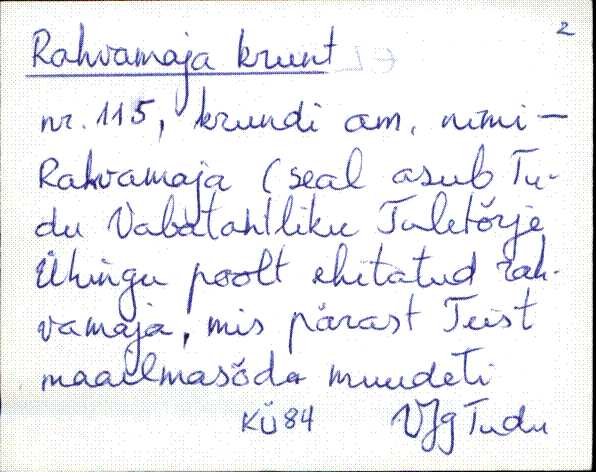 2
Rahvamaja krunt
nr. 115, krundi am. nimi —
Rahvamaja (seal asub Tu-
du Vabatahtliku Tuletõrje
Ühingu poolt ehitatud rah-
vamaja, mis pärast Teist
maailmasõda muudeti
KÜ 84 VJg Tudu